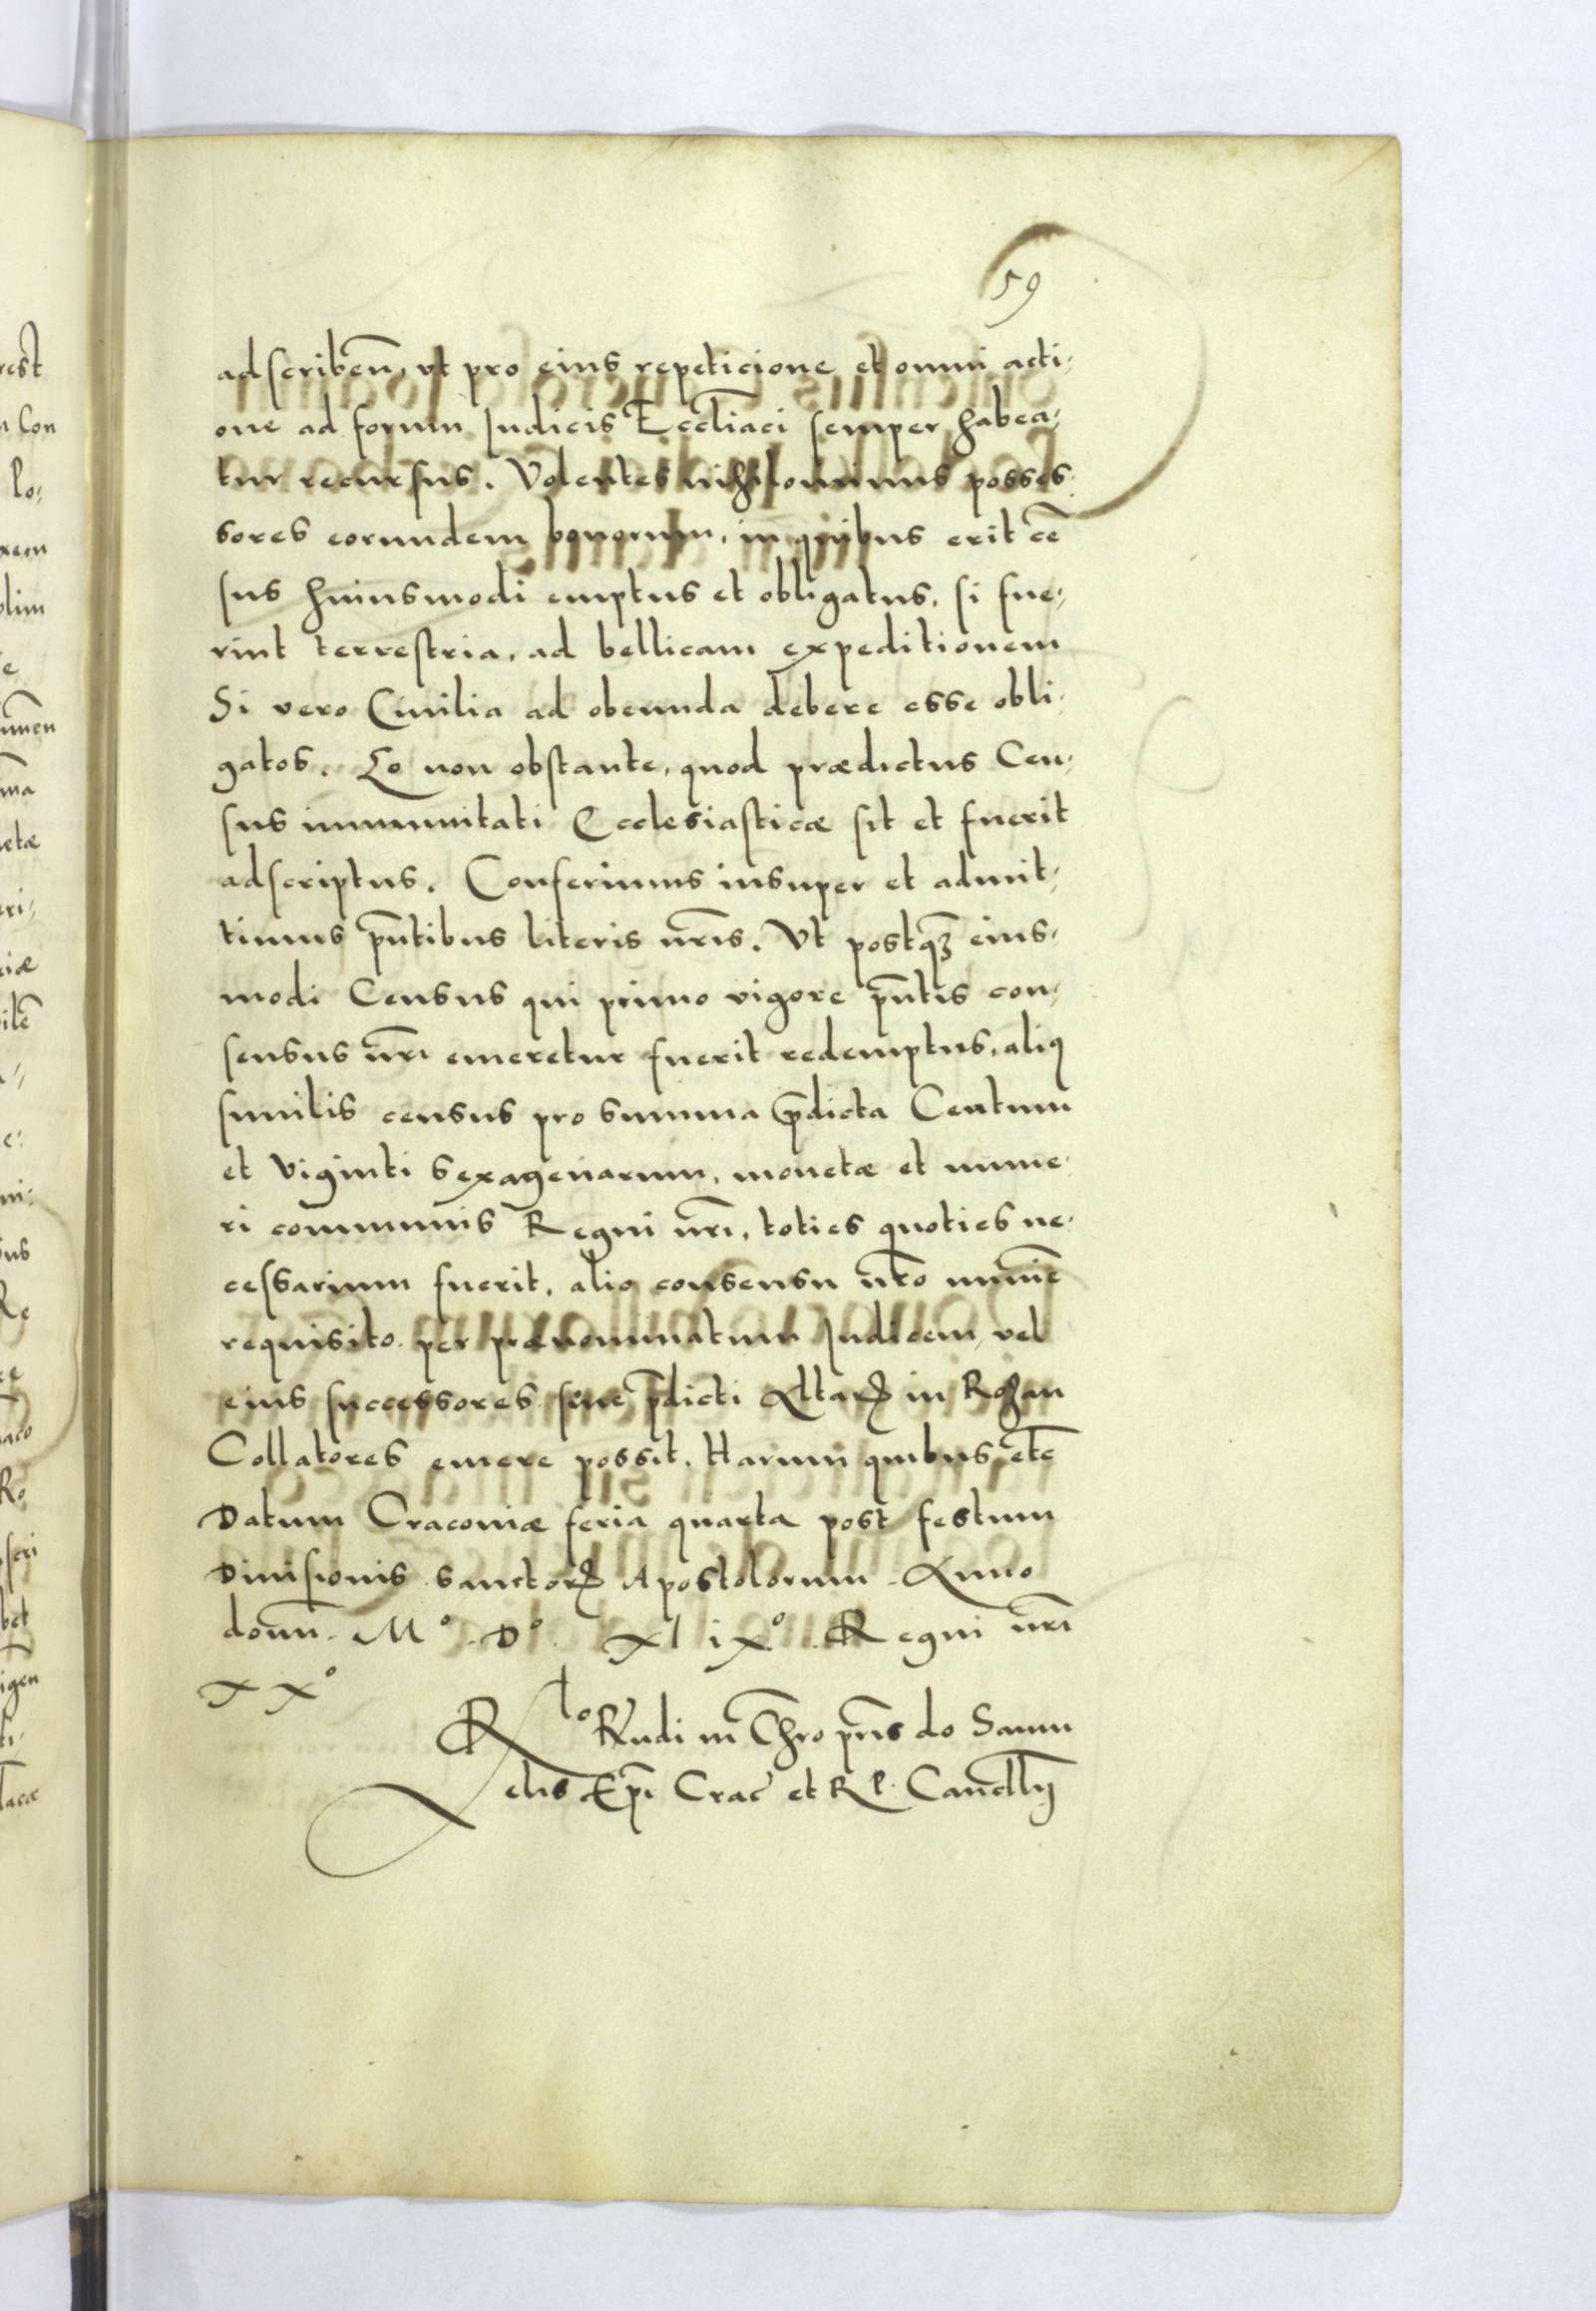 59
adscriben̄, vt pro eius repeticione et omni acti-
one ad forum Iudicis Eccl̄iaci semper habea-
tur recursus. Volentes nihilominus posses-
sores eorundem bonorum, in quibus erit cē
sus huiusmodi emptus et obligatus, si fue-
rint terrestria, ad bellicam expeditionem
Si vero Ciuilia ad obeunda debere esse obli-
gatos. Eo non obstante, quod prædictus Cen-
sus immunitati Ecclesiasticæ sit et fuerit
adscriptus. Conferimus insuper et admit-
timus pn̄tibus literis nr̄is. Vt postqꝫ eius-
modi Census qui primo vigore pn̄tis con-
sensus nr̄i emeretur fuerit redemptus, aliqͅ
similis census pro summa p̄dicta Centum
et Viginti sexagenarum, monetæ et nume-
ri communis Regni nr̄i, toties quoties ne-
cessarium fuerit, alio consensu nr̄o minīe
requisito per prænominatum Iudicem, vel
eius successores siue p̄dicti Altarꝭ in Rozan
Collatores emere possit. Harum quibus etc̄
Datum Cracouiæ feria quarta post festum
Diuisionis sanctorꝭ Apostolorum. Anno
domn̄. Mº. Dº. xl ixº. Regni nr̄i
xxº
Rlº Rn̄di in Chr̄o pr̄is do Samu
elis Ep̄i Crac̄ et R P. Cancllꝭ
rest
Con
lo,
xem
olim
e
nmen
ma
etæ
ri,
iæ
ilē
e.
ni.
us
Re
re
aco
Ro,
seri
bet
igen
ti.